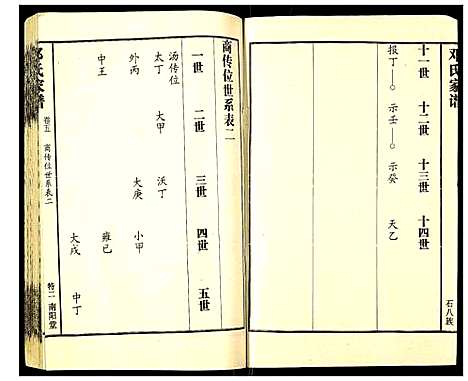 邓氏家谱
十一世 十二世 十三世 十四世
报丁—○—示壬—○—示癸 天乙
石八族
商传位世系表二
一世 二世 三世 四世 五世
汤传位
太丁 太甲 沃丁
外丙 大庚 小甲
中壬 雍已
大戌 中丁
邓氏家谱
卷五 商传位世系表二
特二 南阳堂